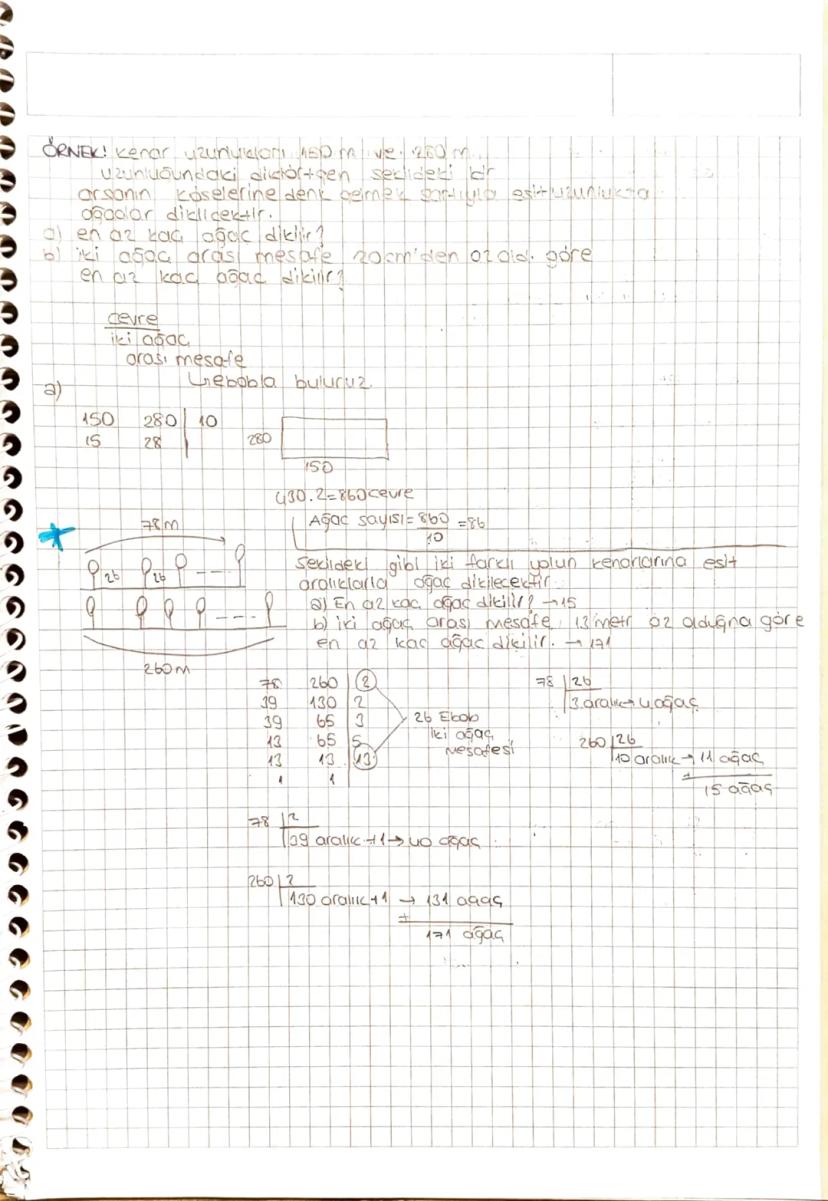 ÖRNEK: Kenar uzunlukları 150 m ve 280 m
uzunluğundaki dikdörtgen şeklideki bir
arsanın köşelerine denk gelmek şartıyla eşit uzunlukta
ağaçlar diklicektir.
a) en az kaç ağaç dikilir?
b) iki ağaç arası mesafe 20cm'den az old. göre
en az kaç ağaç dikilir?
çevre
iki ağaç
arası mesafe
↳ebobla buluruz
a)
150 280 | 10
15 28
280
150
430.2=860 çevre
Ağaç sayısı = 860/10 = 86
78m
26 26
260m
Şeklideki gibi iki farklı yolun kenarlarına eşit
aralıklarla ağaç dikilecektir.
a) En az kaç ağaç dikilir? → 15
b) iki ağaç arası mesafe 13 metr az olduğna göre
en az kaç ağaç dikilir. → 171
78 260 | 2
39 130 | 2
39 65 | 3
13 65 | 5
13 13 | 13
1 1
26 Ebob
iki ağaç
mesafesi
78 | 26
3 aralık → 4 ağaç
260 | 26
10 aralık → 11 ağaç
+
15 ağaç
78 | 2
39 aralık +1 → 40 ağaç
260 | 2
130 aralık +1 → 131 ağaç
+
171 ağaç